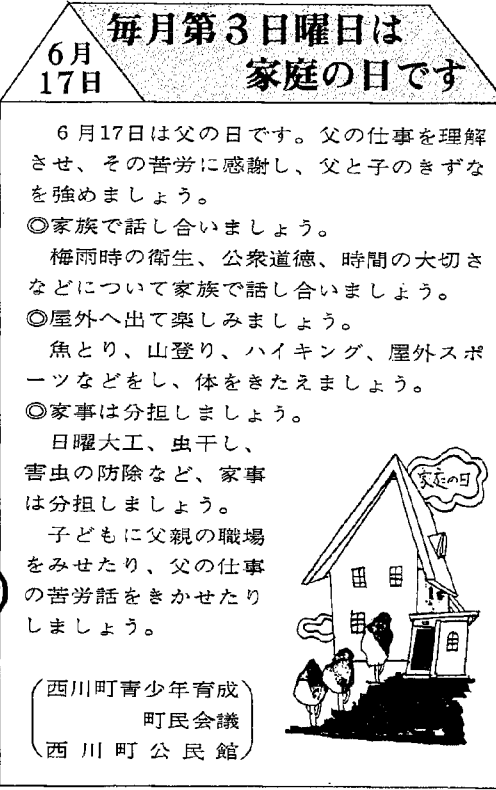 6月
17日
毎月第3日曜日は
家庭の日です
6月17日は父の日です。父の仕事を理解
させ、その苦労に感謝し、父と子のきずな
を強めましょう。
◎家族で話し合いましょう。
梅雨時の衛生、公衆道徳、時間の大切さ
などについて家族で話し合いましょう。
◎屋外へ出て楽しみましょう。
魚とり、山登り、ハイキング、屋外スポ
ーツなどをし、体をきたえましょう。
◎家事は分担しましょう。
日曜大工、虫干し、
害虫の防除など、家事
は分担しましょう。
子どもに父親の職場
をみせたり、父の仕事
の苦労話をきかせたり
しましょう。
家庭の日
(西川町青少年育成
町民会議
西川町公民館)